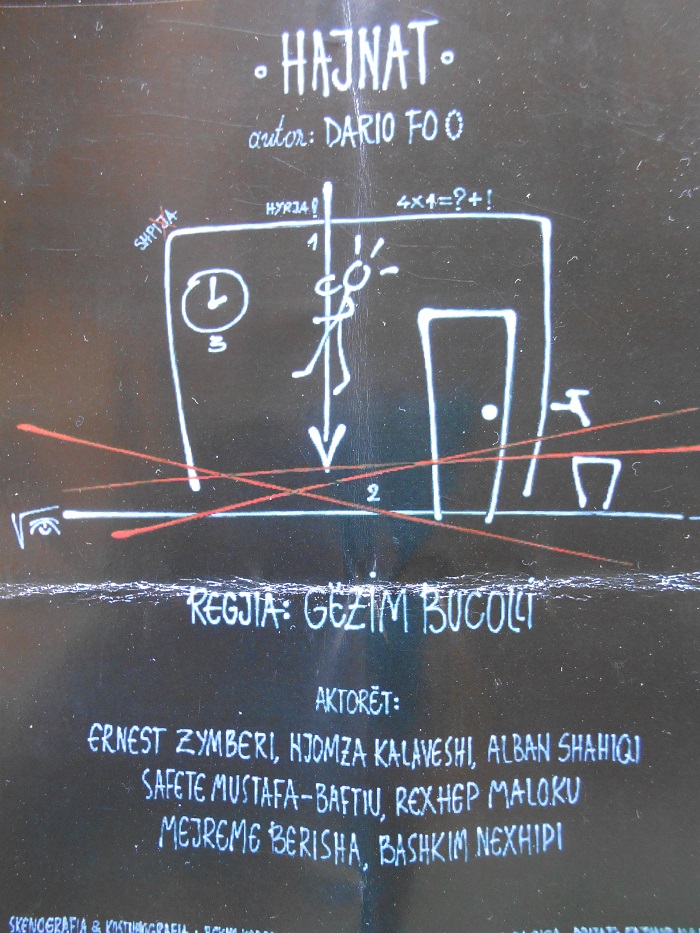 • HAJNAT •
autor: DARIO FO O
HYRJA!
4x4=?+!
SHPIJA
1
3
2
REGJIA: GËZIM BUCOLLI
AKTORËT:
ERNEST ZYMBERI, HJOMZA KALAVESHI, ALBAN SHAHIQI
SAFETE MUSTAFA-BAFTIU, REXHEP MALOKU
MEJREME BERISHA, BASHKIM NEXHIPI
SKENOGRAFIA &